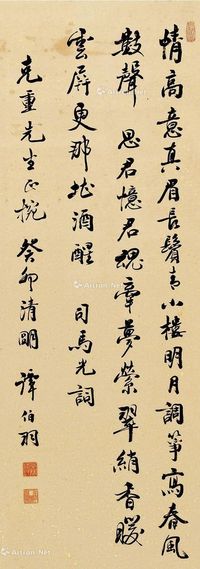 情高意真眉長鬢青小樓明月調箏寫春風
數聲　思君憶君魂牽夢縈翠綃香暖
雲屏更那堪酒醒　司馬光詞
克重先生正挽　癸卯清明　譚伯羽